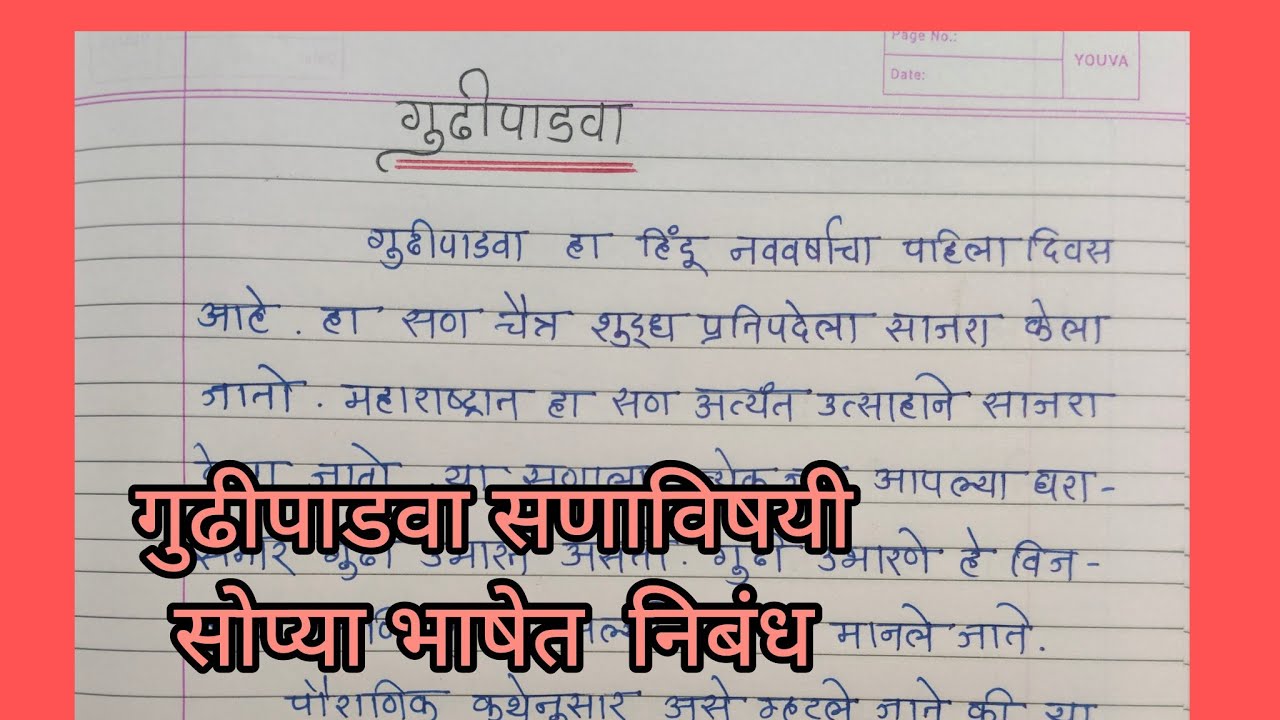 Page No.:
Date:
YOUVA
गुढीपाडवा
गुढीपाडवा हा हिंदू नववर्षाचा पहिला दिवस
आहे. हा सण चैत्र शुद्ध प्रतिपदेला साजरा केला
जातो. महाराष्ट्रात हा सण अत्यंत उत्साहाने साजरा
जातो. या आपल्या घरा-
गुढीपाडवा सणाविषयी
गुढी उभारणे हे विज-
सोप्या भाषेत निबंध
मानले जाते.
पौराणिक कथेनुसार असे म्हटले जाते की या